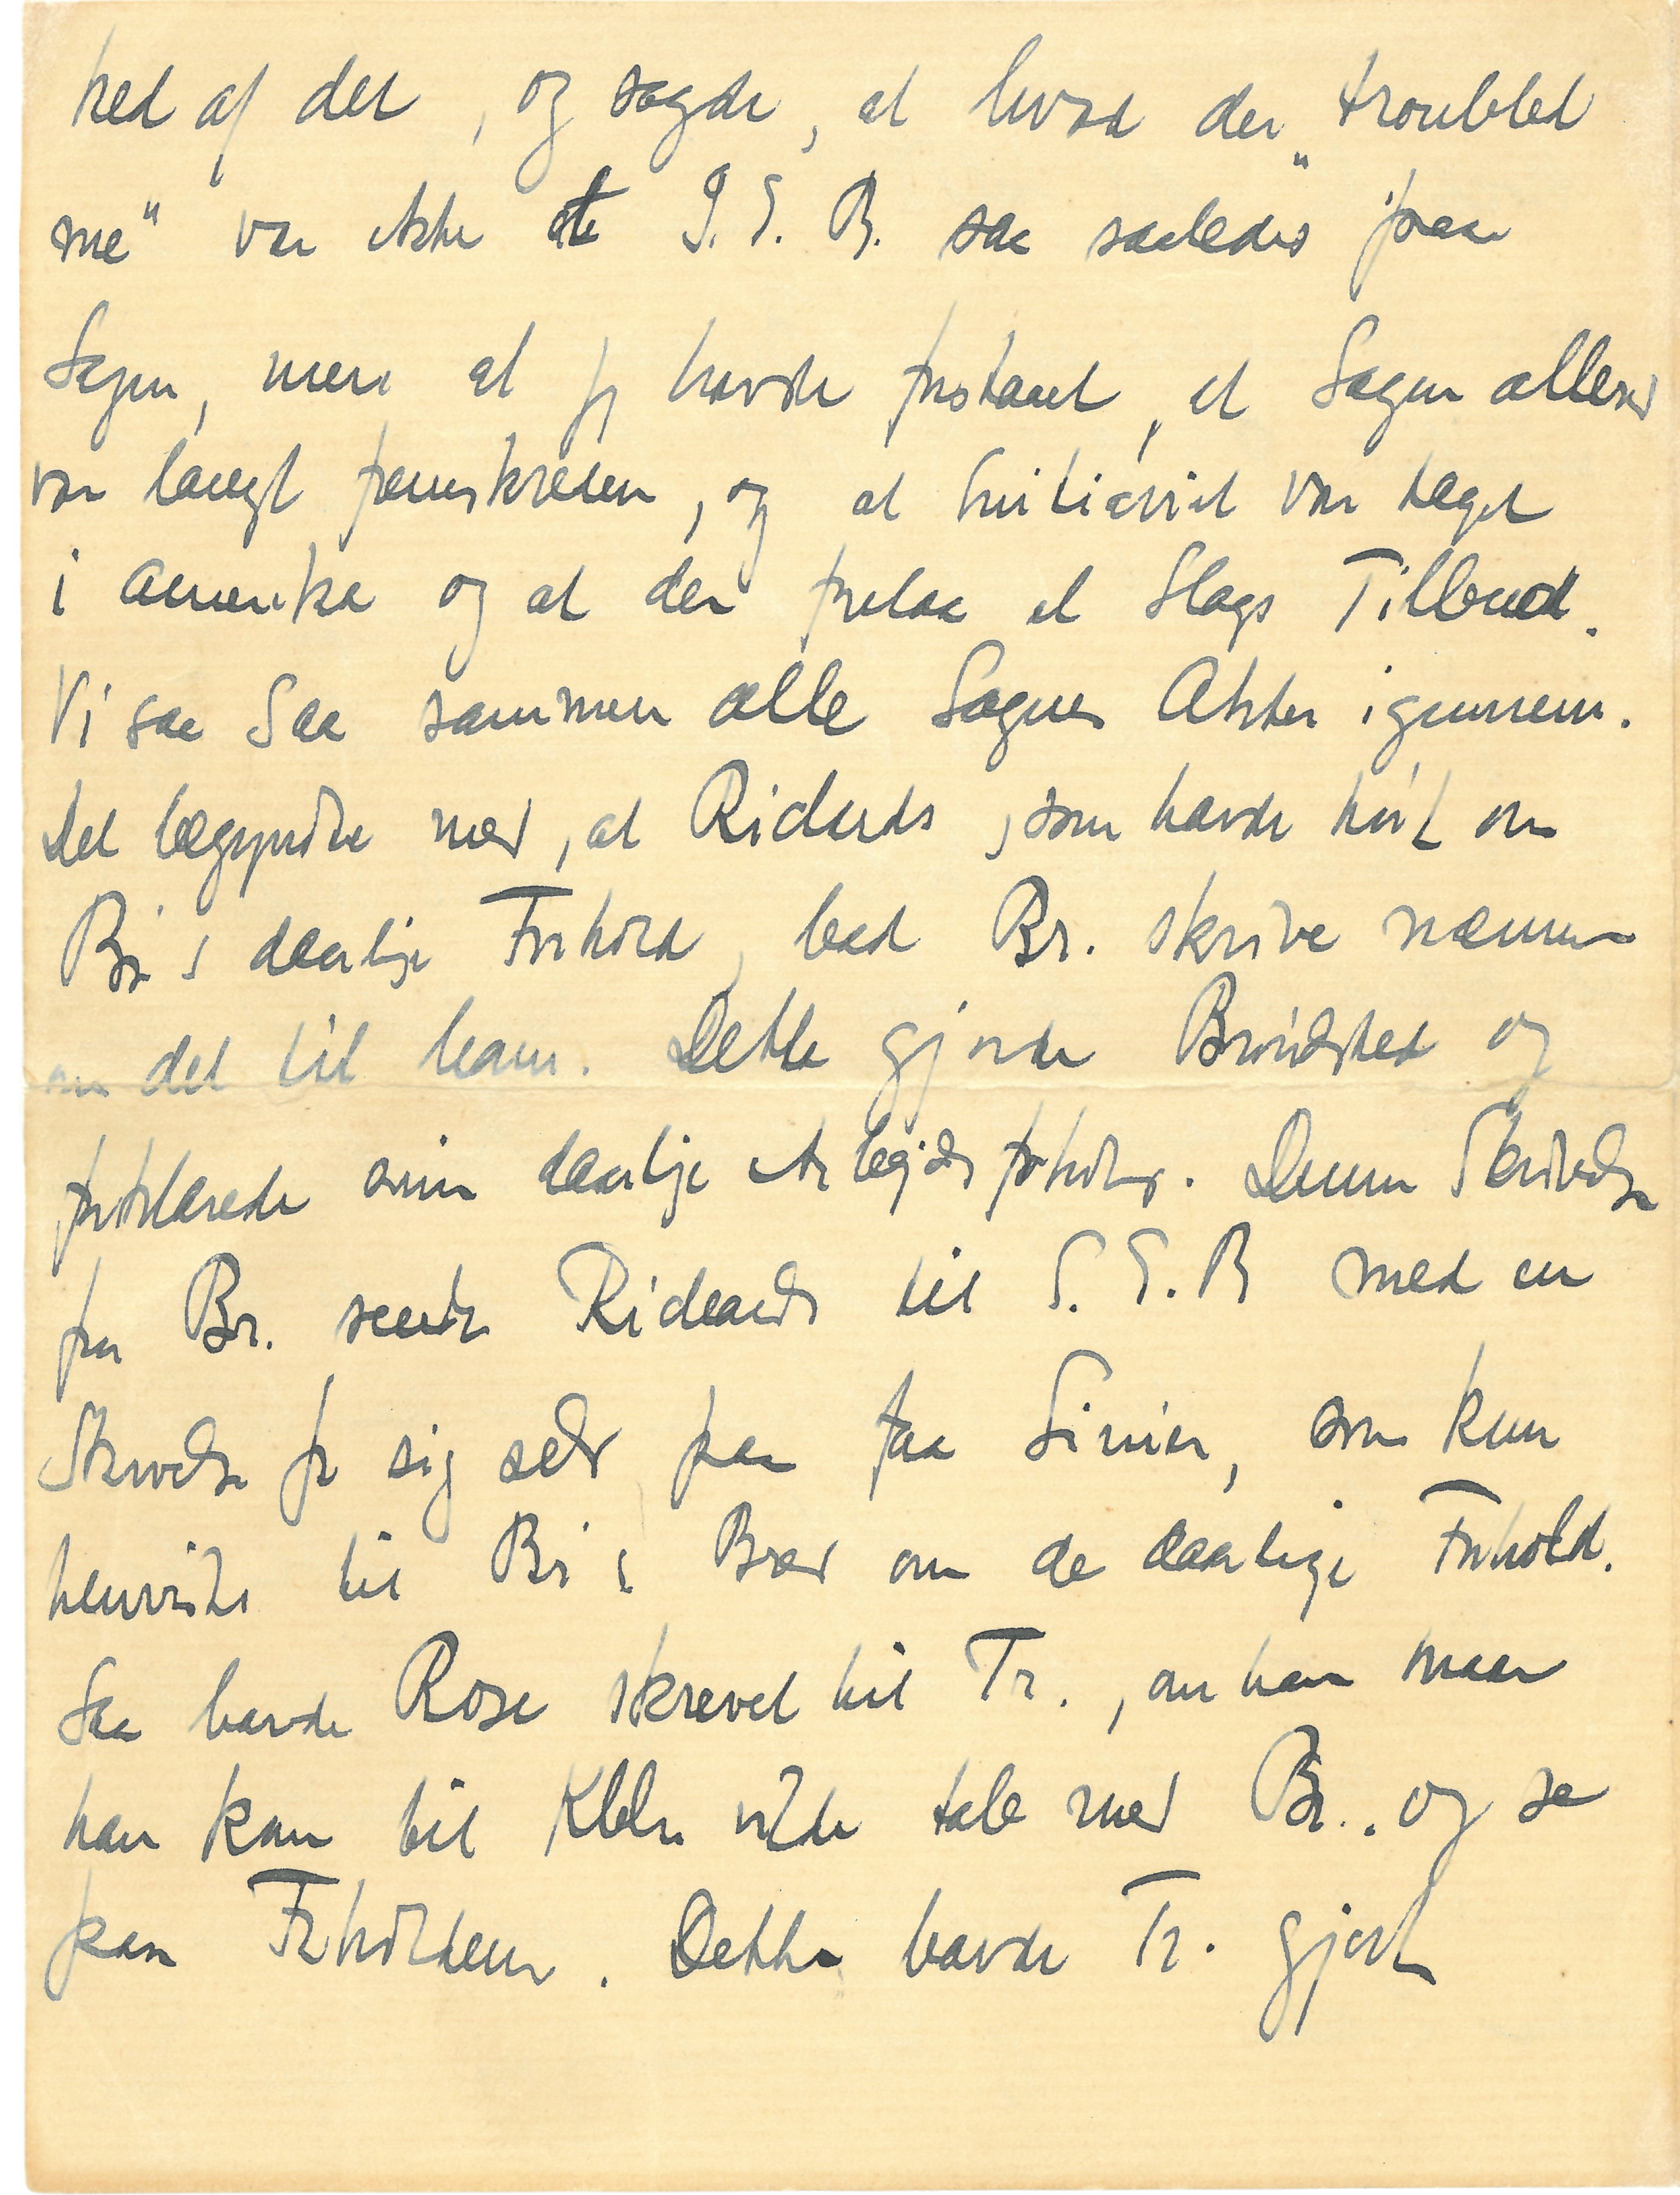 ked af det, og sagde, at hvad der „troubled
me" var ikke at I. E. B. saa saaledes paa
Sagen, men at jeg havde forstaaet, at Sagen allered
var langt fremskreden, og at Initiativet var taget
i Amerika og at der forelaa et Slags Tilbud.
Vi saa saa sammen alle Sagens Akter igennem.
Det begyndte med, at Richards, som havde hørt om
Br's daarlige Forhold, bad Br. skrive nærmere
om det til ham. Dette gjorde Brøndsted og
forklarede sine daarlige Arbejdsforhold. Denne Skrivelse
fra Br. sendte Richards til I. E. B med en
Skrivelse fra sig selv paa faa Linier, som kun
henviste til Br's Brev om de daarlige Forhold.
Saa havde Rose skrevet til Tr., om han naar
han kom til Kbhn vilde tale med Br.. og se
paa Forholdene. Dette havde Tr. gjort